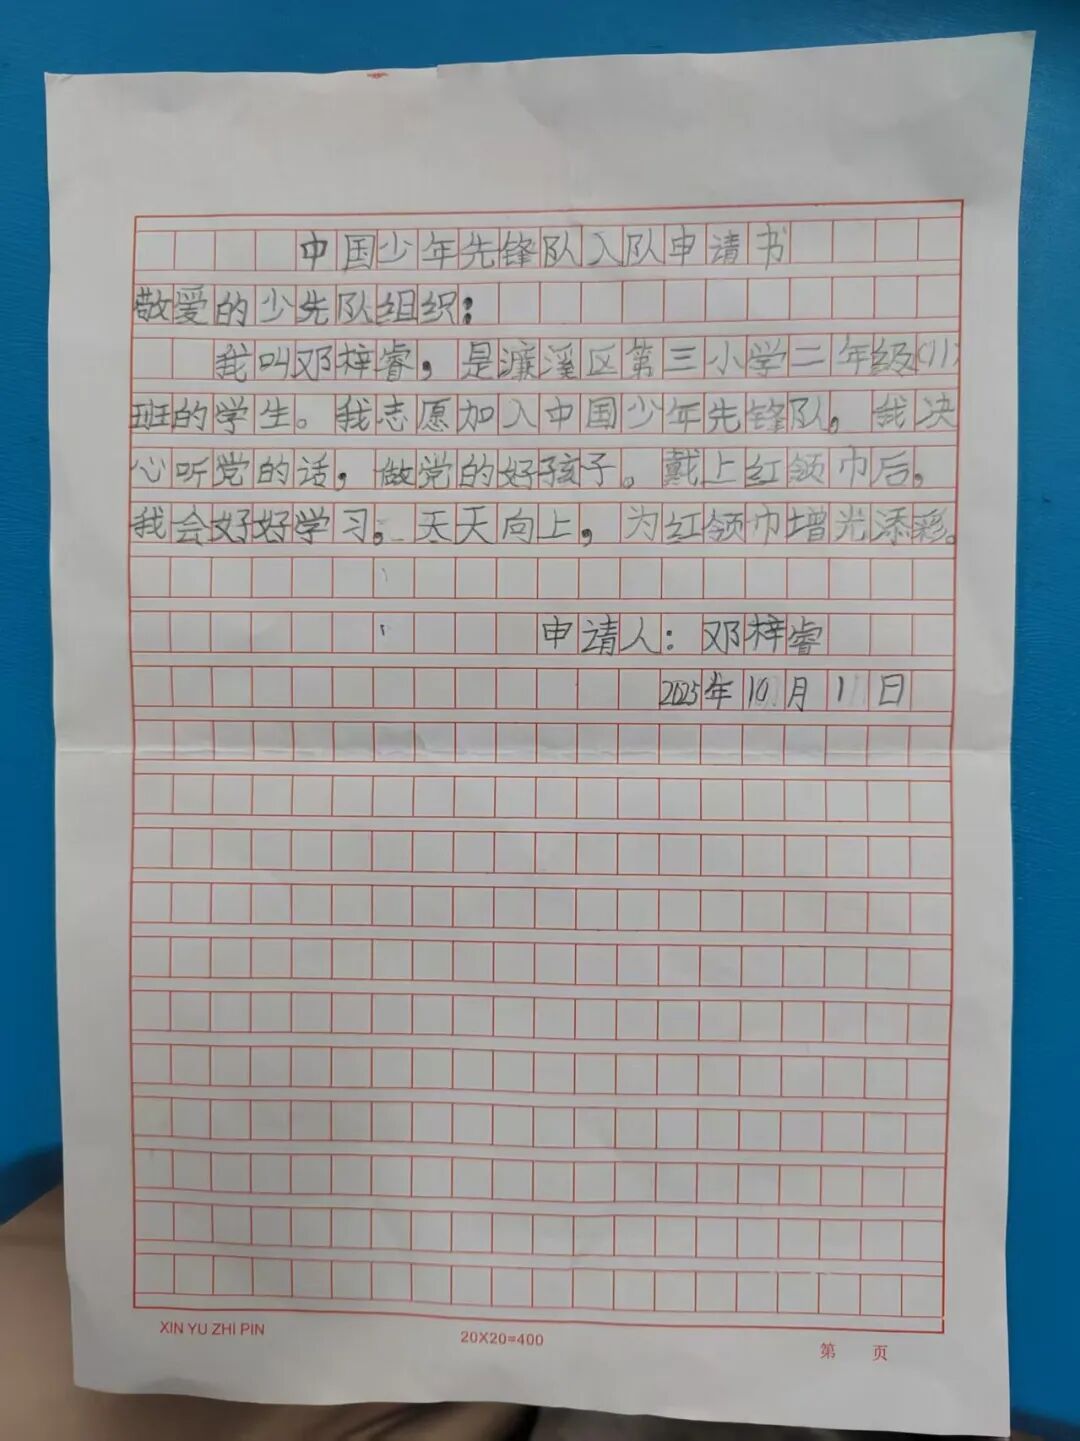 中国少年先锋队入队申请书
敬爱的少先队组织：
我叫邓梓睿，是濂溪区第三小学二年级(11)
班的学生。我志愿加入中国少年先锋队。我决
心听党的话，做党的好孩子。戴上红领巾后，
我会好好学习，天天向上，为红领巾增光添彩。
申请人：邓梓睿
2025年10月11日
XIN YU ZHI PIN
20X20=400
第 页